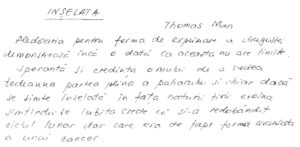 INSELATA
Thomas Man
Pledoaria pentru forma de exprimare a dragostei
demonstrează încă o dată că aceasta nu are limite.
Speranta si credinta omului de a vedea
todeauna partea plină a paharului si chiar dacă
se simte înselată în fata naturii eroina
simtindu-se iubita crede că si-a redobândit
ciclul lunar dar care era de fapt forma avansata
a unui cancer.